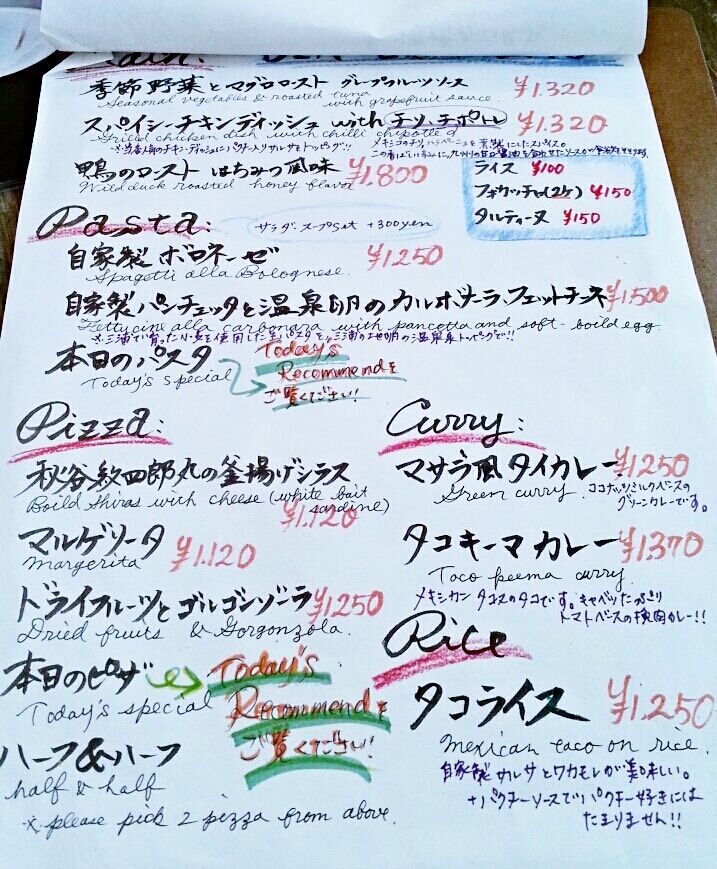 Main:
季節野菜とマグロロースト グレープフルーツソース ¥1.320
Seasonal vegetables & roasted tuna
with grapefruit sauce
スパイシーチキンディッシュ with チリ、チポトレ ¥1.320
Griled chicken dish with chilli chipotle
鴨のロースト はちみつ風味 ¥1.800
Wild duck roasted honey flavor
ライス ¥100
フォカッチャ(2ケ) ¥150
タルティーヌ ¥150
Pasta:
サラダ、スープset +300yen
自家製ボロネーゼ ¥1.250
Spagetti alla Bolognese.
自家製パンチェッタと温泉卵のカルボナーラ、フェットチーネ ¥1.500
Fettucine alla carbonara with pancetta and soft-boild egg.
本日のパスタ
Today's special
Today's
Recommendを
ご覧ください!
Pizza:
秋谷紋四郎丸の釜揚げシラス
Boild Shiras with cheese (white bait
sardine)
¥1.120
マルゲリータ ¥1.120
Margerita
ドライフルーツとゴルゴンゾーラ ¥1.250
Dried fruits & Gorgonzola.
本日のピザ
Today's special
Today's
Recommendを
ご覧ください!
ハーフ&ハーフ
half & half
※ please pick 2 pizza from above.
Curry:
マサラ風タイカレー ¥1.250
Green curry.
ココナッツミルクベースの
グリーンカレーです。
タコキーマカレー ¥1.370
Taco keema curry.
メキシカンタコスのタコです。キャベツたっぷり
トマトベースの挽肉カレー!!
Rice
タコライス ¥1.250
mexican taco on rice.
自家製サルサとワカモレが美味しい。
+パクチーソースでパクチー好きには
たまりません!!